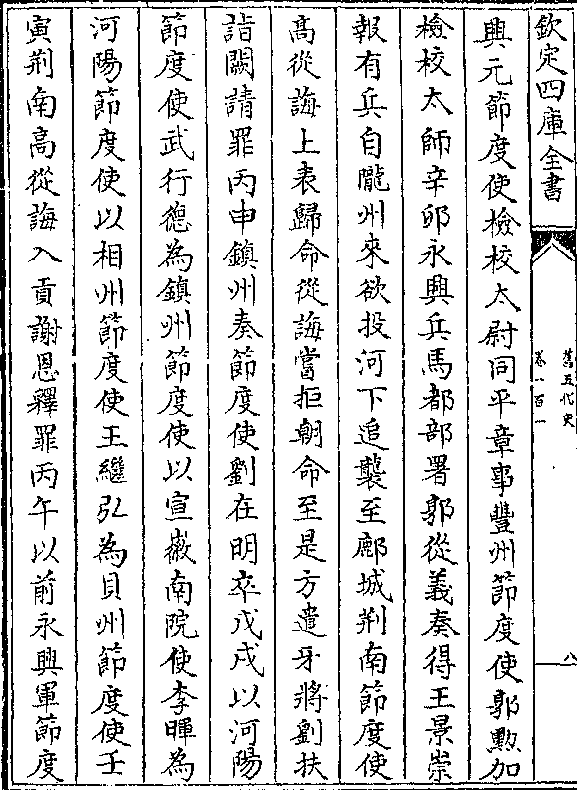 欽定四庫全書
舊五代史
卷一百一
八
興元節度使檢校太尉同平章事豐州節度使郭勲加
檢校太師辛卯永興兵馬都部署郭從義奏得王景崇
報有兵自隴州來欲投河下追襲至郿城荆南節度使
髙從誨上表歸命從誨嘗拒朝命至是方遣牙將劉扶
詣闕請罪丙申鎮州奏節度使劉在明卒戊戌以河陽
節度使武行德為鎮州節度使以宣徽南院使李暉為
河陽節度使以相州節度使王繼弘為貝州節度使壬
寅荆南高從誨入貢謝恩釋罪丙午以前永興軍節度